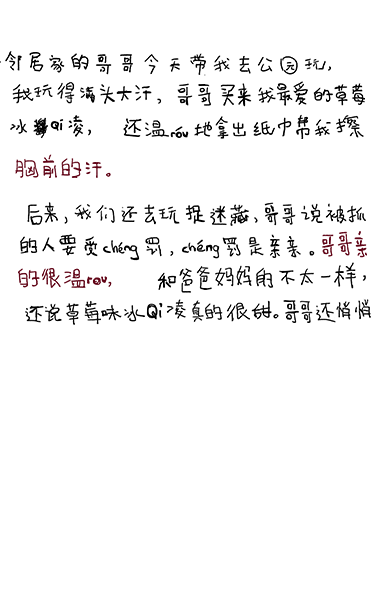 邻居家的哥哥今天带我去公园玩，
我玩得满头大汗，哥哥买来我最爱的草莓
冰Qi凌，还温róu地拿出纸巾帮我擦
胸前的汗。
后来，我们还去玩捉迷藏，哥哥说被抓
的人要受chéng罚，chéng罚是亲亲。哥哥亲
的很温rou，和爸爸妈妈的不太一样，
还说草莓味冰Qi凌真的很甜。哥哥还悄悄